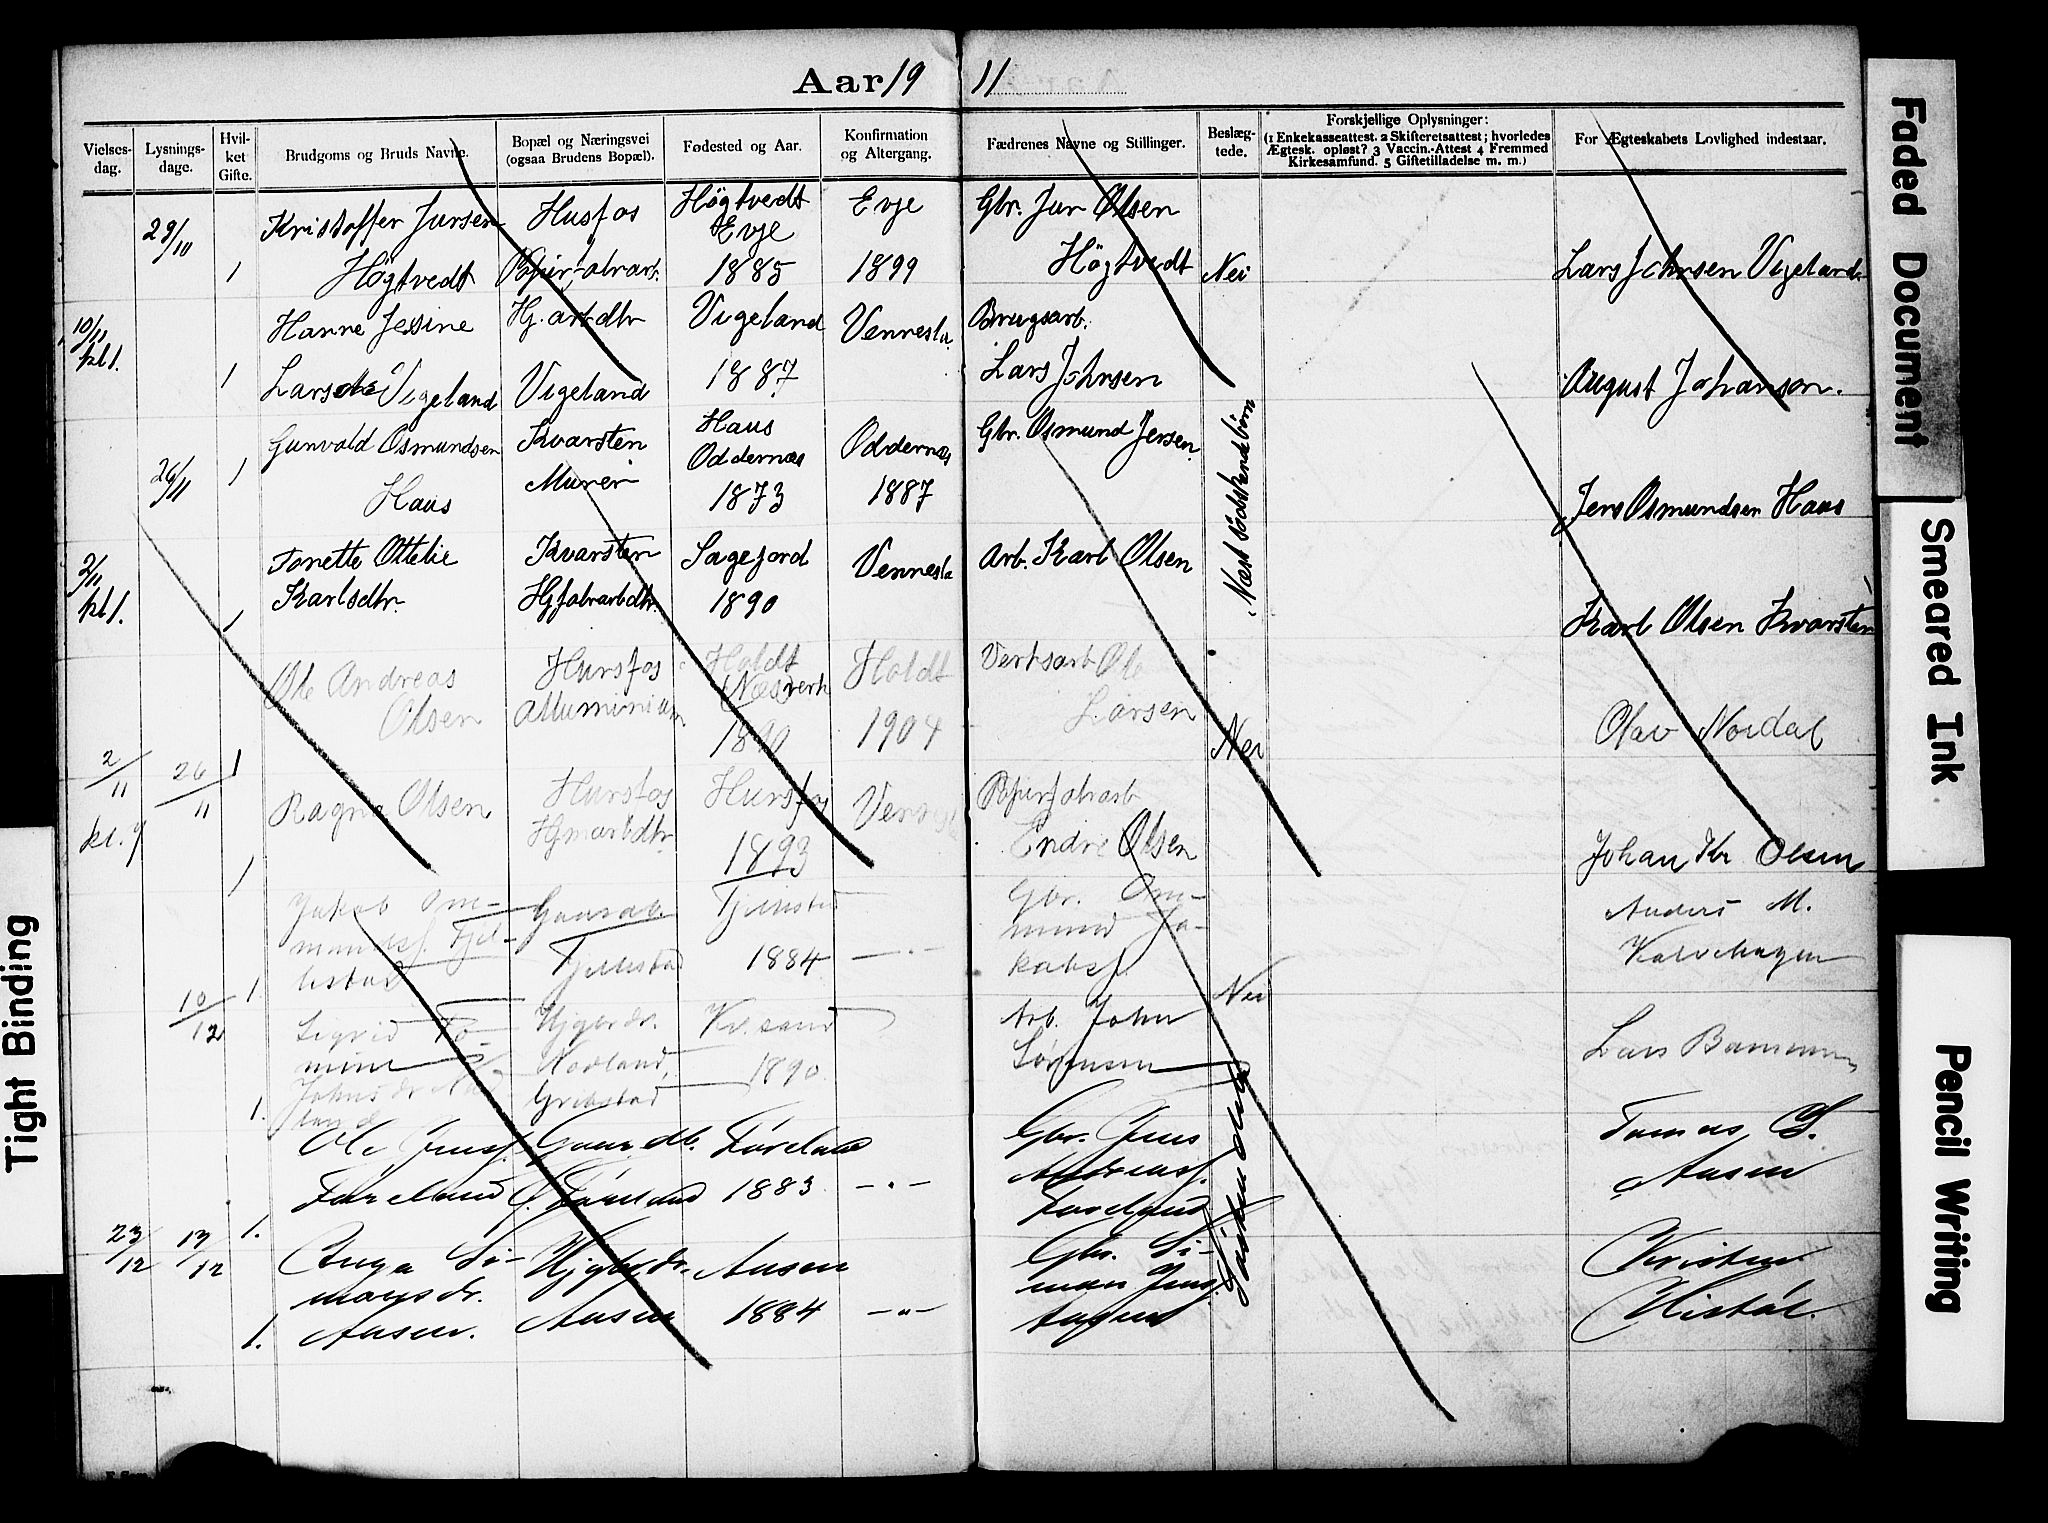 Aar 19 11
Vielses-
dag.
Lysnings-
dage.
Hvil-
ket
Gifte.
Brudgoms og Bruds Navne.
Bopæl og Næringsvei
(ogsaa Brudens Bopæl).
Fødested og Aar.
Konfirmation
og Altergang.
Fædrenes Navne og Stillinger.
Beslæg-
tede.
Forskjellige Oplysninger:
(1 Enkekasseattest. 2 Skifteretsattest; hvorledes
Ægtesk. opløst? 3 Vaccin.-Attest 4 Fremmed
Kirkesamfund. 5 Giftetilladelse m. m.)
For Ægteskabets Lovlighed indestaar.
29/10
1
Kristoffer Jursen
Høgtvedt
Husfos
Høgtvedt
Evje
1885
Evje
1899
Gbr. Jur Olsen
Høgtvedt
Nei
Lars Johnsen Vigeland
10/11
kl 1.
1
Hanne Jesine
Vigeland
Hg. arbdtr
Vigeland
Vigeland
1887
Vennesla
Brugsarb.
Lars Johnsen
August Johanson.
26/11
1
Gunvald Osmundsen
Haus
Kvarsten
Murer
Haus
Oddernæs
1873
Oddernæs
1887
Gbr. Osmund Jensen
Næst sødskendebørn
Jens Osmundsen Haus
kl 1.
1
Tonette Ottelie
Karlsdtr.
Kvarsten
Hgfabrarbdtr.
Sagejord
1890
Vennesla
Arb. Karl Olsen
Karl Olsen Kvarsten
Ole Andreas
Olsen
Hunsfos
Aluminium
Holdt
Næsverk
1890
Holdt
1904
Verksarb Ole
Larsen
Nei
Olav Nordal
2/11
kl. 7
26/11
1
1
Ragna Olsen
Hunsfos
Hgmarbdtr
Hunsfos
1893
Papirfabrarb
Endre Olsen
Johan Kr Olsen
Jakob Om-
mundsf. Tjel-
lestad
Gaardb.
Tjellestad
Tjellestad
1884
— " —
Gbr. Om-
mund Ja-
kobsf.
Nei
Anders M.
Kalvehagen
10/12
1.
1.
Sigrid To-
mine
Johnsdr. Nod-
land
Hjgbrdr.
Nodland,
Grebstad
Kr. sand
1890
Arb. John
Sørensen
Lars
Ole Jensf.
Føreland
Gaardb.
Føreland
Føreland
1883
— " —
Gbr. Jens
Andreasf.
Føreland
Tomas S.
Aasen
23/12
17/12
1.
1.
Anga Si-
monsdr.
Aasen.
Hjgbrdr.
Aasen
Aasen
1884
— " —
Gbr. Si-
mon Jensf.
Aasen
Kristen
Faded Document
Smeared Ink
Pencil Writing
Tight Binding